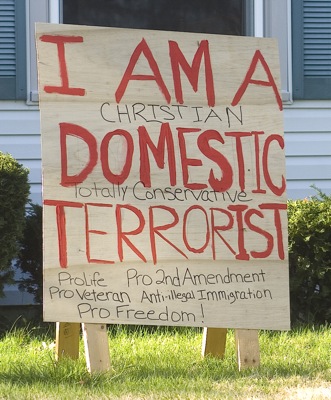 I AM A
CHRISTIAN
DOMESTIC
Totally Conservative
TERRORIST
ProLife Pro 2nd Amendment
Pro Veteran Anti-illegal Immigration
Pro Freedom!